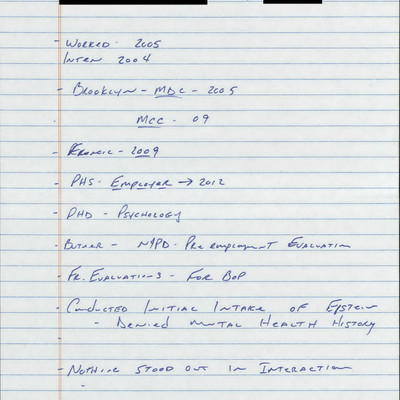 - Worked - 2005
Intern 2004
- Brooklyn - MDC - 2005
MCC - 09
- - 2009
- PHS - Employer → 2012
- PHD - Psychology
- Butner - NYPD - Pre employment Evaluation
- Fr. Evaluations - For BOP
- Conducted Initial Intake of Epstein
- Denied Mental Health History
-
- Nothing stood out in Interaction
-